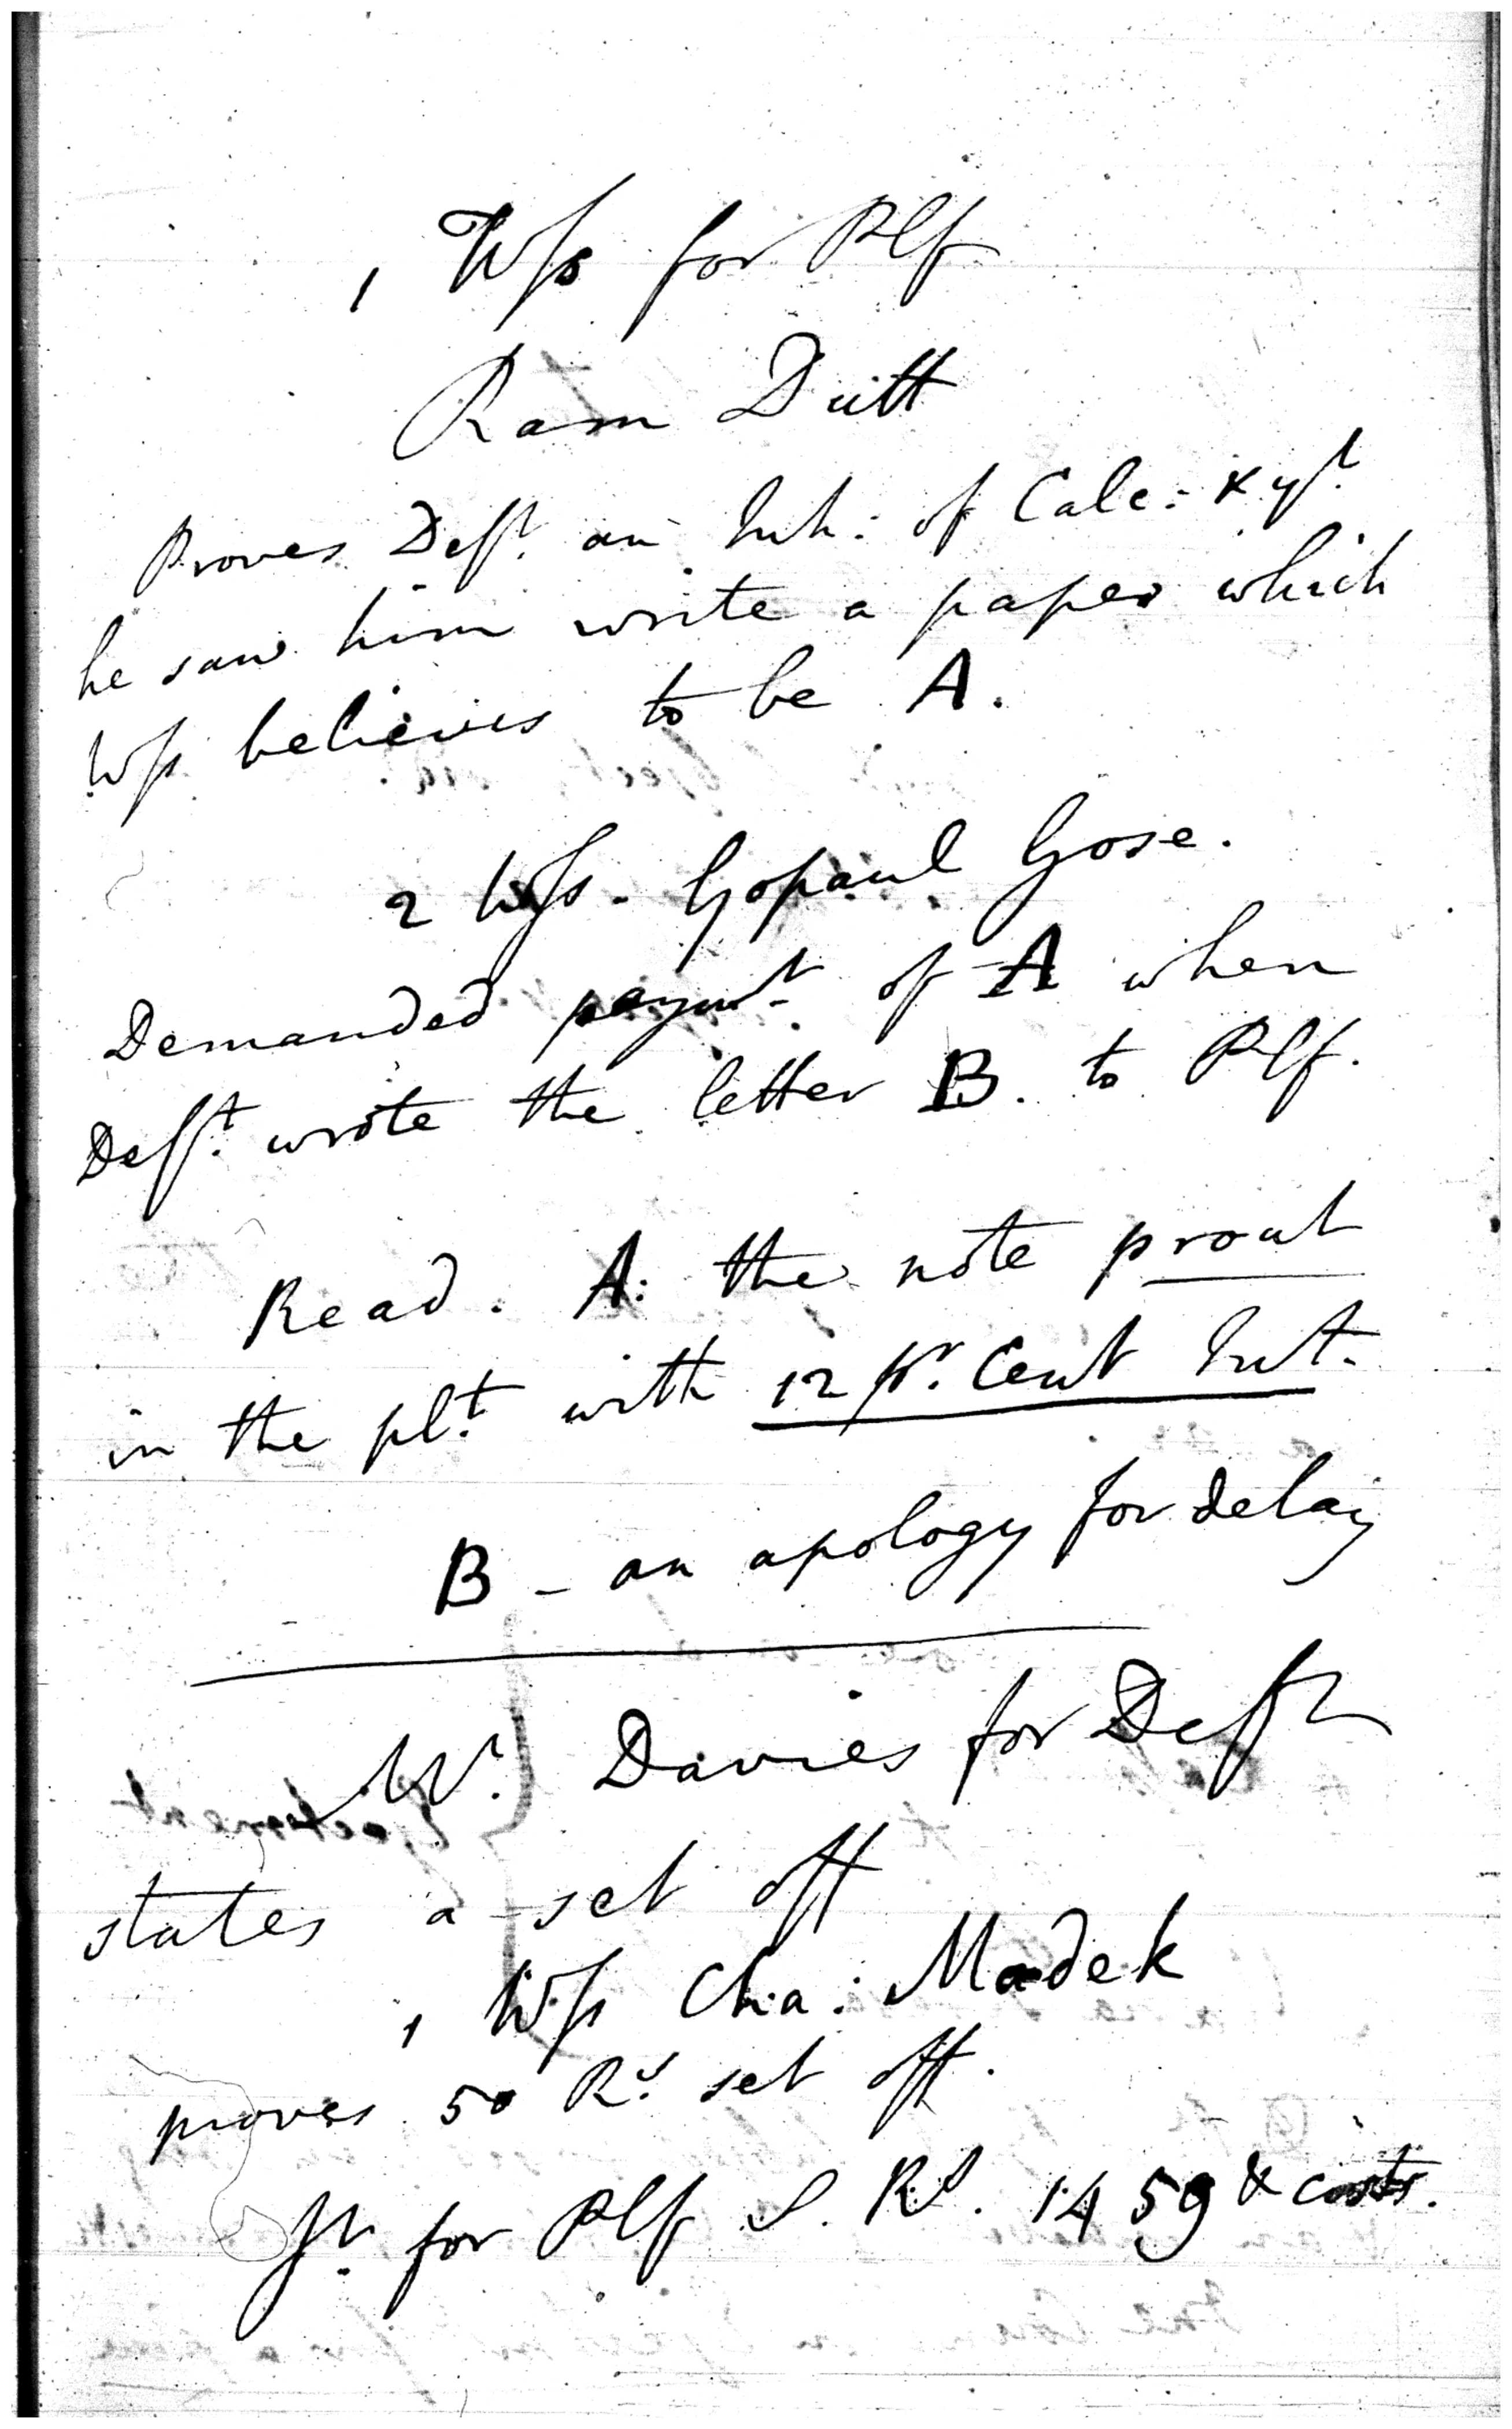 1 Wss for Plf
Ram Dutt
Proves Deft. an Inh: of Calc: & yt.
he saw him write a paper which
Wss believes to be A.
2 Wss. Gopaul Gose.
Demanded paymt. of A when
Deft. wrote the letter B. to Plf.
Read. A: the note prout
in the plt. with 12 pr. Cent Int.
B - an apology for delay
Mr. Davies for Deft
states a set off
1 Wss Cha: Madek
proves 50 Rs. set off.
Jt. for Plf S. Rs. 1459 & costs.